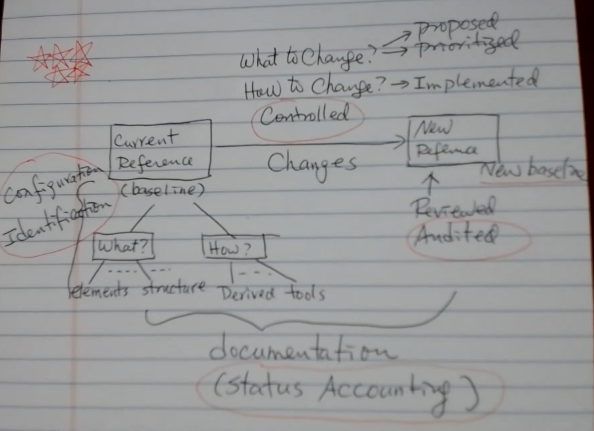 What to Change? → proposed
→ prioritized
How to Change? → Implemented
Controlled
Current
Reference
(baseline)
Changes
New
Refernce
New baseline
Configuration
Identification
Reviewed
Audited
What?
How?
elements structure Derived tools
documentation
(Status Accounting)